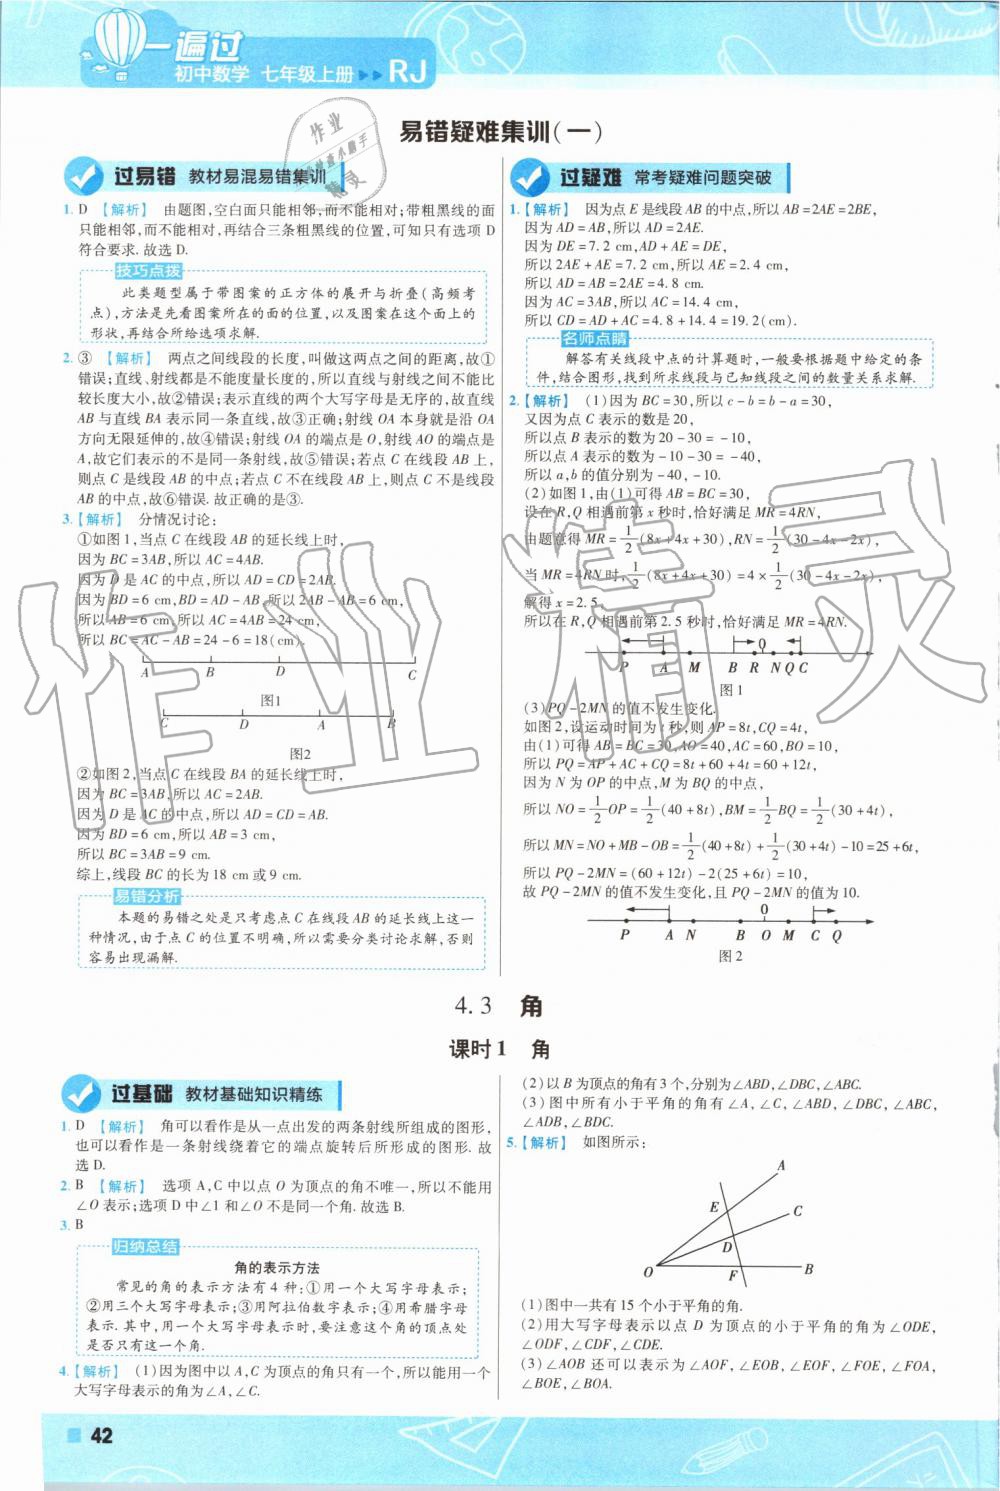 一遍过
初中数学 七年级上册 RJ
易错疑难集训(一)
过易错 教材易混易错集训
1. D 【解析】 由题图,空白面只能相邻,而不能相对;带粗黑线的面
只能相邻,而不能相对,再结合三条粗黑线的位置,可知只有选项 D
符合要求. 故选 D.
技巧点拨
此类题型属于带图案的正方体的展开与折叠(高频考
点),方法是先看图案所在的面的位置,以及图案在这个面上的
形状,再结合所给选项求解.
2. ③ 【解析】 两点之间线段的长度,叫做这两点之间的距离,故①
错误;直线、射线都是不能度量长度的,所以直线与射线之间不能比
较长度大小,故②错误;表示直线的两个大写字母是无序的,故直线
AB 与直线 BA 表示同一条直线,故③正确;射线 OA 本身就是沿 OA
方向无限延伸的,故④错误;射线 OA 的端点是 O,射线 AO 的端点是
A,故它们表示的不是同一条射线,故⑤错误;若点 C 在线段 AB 上,
则点 C 是线段 AB 的中点;若点 C 不在线段 AB 上,则点 C 不是线段
AB 的中点,故⑥错误. 故正确的是③.
3.【解析】 分情况讨论:
①如图 1,当点 C 在线段 AB 的延长线上时,
因为 BC = 3AB,所以 AC = 4AB.
因为 D 是 AC 的中点,所以 AD = CD = 2AB.
因为 BD = 6 cm,BD = AD - AB,所以 2AB - AB = 6 cm,
所以 AB = 6 cm,所以 AC = 4AB = 24 cm,
所以 BC = AC - AB = 24 - 6 = 18(cm).
A B D C
图1
C D A B
图2
②如图 2,当点 C 在线段 BA 的延长线上时,
因为 BC = 3AB,所以 AC = 2AB.
因为 D 是 AC 的中点,所以 AD = CD = AB.
因为 BD = 6 cm,所以 AB = 3 cm,
所以 BC = 3AB = 9 cm.
综上,线段 BC 的长为 18 cm 或 9 cm.
易错分析
本题的易错之处是只考虑点 C 在线段 AB 的延长线上这一
种情况,由于点 C 的位置不明确,所以需要分类讨论求解,否则
容易出现漏解.
过疑难 常考疑难问题突破
1.【解析】 因为点 E 是线段 AB 的中点,所以 AB = 2AE = 2BE,
因为 AD = AB,所以 AD = 2AE.
因为 DE = 7.2 cm,AD + AE = DE,
所以 2AE + AE = 7.2 cm,所以 AE = 2.4 cm,
所以 AD = AB = 2AE = 4.8 cm.
因为 AC = 3AB,所以 AC = 14.4 cm,
所以 CD = AD + AC = 4.8 + 14.4 = 19.2(cm).
名师点睛
解答有关线段中点的计算题时,一般要根据题中给定的条
件,结合图形,找到所求线段与已知线段之间的数量关系求解.
2.【解析】 (1)因为 BC = 30,所以 c - b = b - a = 30,
又因为点 C 表示的数是 20,
所以点 B 表示的数为 20 - 30 = -10,
所以点 A 表示的数为 -10 - 30 = -40,
所以 a,b 的值分别为 -40, -10.
(2)如图 1,由(1)可得 AB = BC = 30,
设在 R,Q 相遇前第 x 秒时,恰好满足 MR = 4RN,
由题意得 MR = 1/2(8x + 4x + 30),RN = 1/2(30 - 4x - 2x),
当 MR = 4RN 时,1/2(8x + 4x + 30) = 4 × 1/2(30 - 4x - 2x),
解得 x = 2.5,
所以在 R,Q 相遇前第 2.5 秒时,恰好满足 MR = 4RN.
0
P A M B R N Q C
图 1
(3)PQ - 2MN 的值不发生变化.
如图 2,设运动时间为 t 秒,则 AP = 8t,CQ = 4t,
由(1)可得 AB = BC = 30,AO = 40,AC = 60,BO = 10,
所以 PQ = AP + AC + CQ = 8t + 60 + 4t = 60 + 12t,
因为 N 为 OP 的中点,M 为 BQ 的中点,
所以 NO = 1/2 OP = 1/2(40 + 8t),BM = 1/2 BQ = 1/2(30 + 4t),
所以 MN = NO + MB - OB = 1/2(40 + 8t) + 1/2(30 + 4t) - 10 = 25 + 6t,
所以 PQ - 2MN = (60 + 12t) - 2(25 + 6t) = 10,
故 PQ - 2MN 的值不发生变化,且 PQ - 2MN 的值为 10.
0
P A N B O M C Q
图 2
4.3 角
课时 1 角
过基础 教材基础知识精练
1. D 【解析】 角可以看作是从一点出发的两条射线所组成的图形,
也可以看作是一条射线绕着它的端点旋转后所形成的图形. 故
选 D.
2. B 【解析】 选项 A,C 中以点 O 为顶点的角不唯一,所以不能用
∠O 表示;选项 D 中∠1 和∠O 不是同一个角. 故选 B.
3. B
归纳总结
角的表示方法
常见的角的表示方法有 4 种:①用一个大写字母表示;
②用三个大写字母表示;③用阿拉伯数字表示;④用希腊字母
表示. 其中,用一个大写字母表示时,要注意这个角的顶点处
是否只有这一个角.
4.【解析】 (1)因为图中以 A,C 为顶点的角只有一个,所以能用一个
大写字母表示的角为∠A,∠C.
(2)以 B 为顶点的角有 3 个,分别为∠ABD,∠DBC,∠ABC.
(3)图中所有小于平角的角有∠A,∠C,∠ABD,∠DBC,∠ABC,
∠ADB,∠BDC.
5.【解析】 如图所示:
A
E C
D
O F B
(1)图中一共有 15 个小于平角的角.
(2)用大写字母表示以点 D 为顶点的小于平角的角为∠ODE,
∠ODF,∠CDF,∠CDE.
(3)∠AOB 还可以表示为∠AOF,∠EOB,∠EOF,∠FOE,∠FOA,
∠BOE,∠BOA.
42
作业精灵